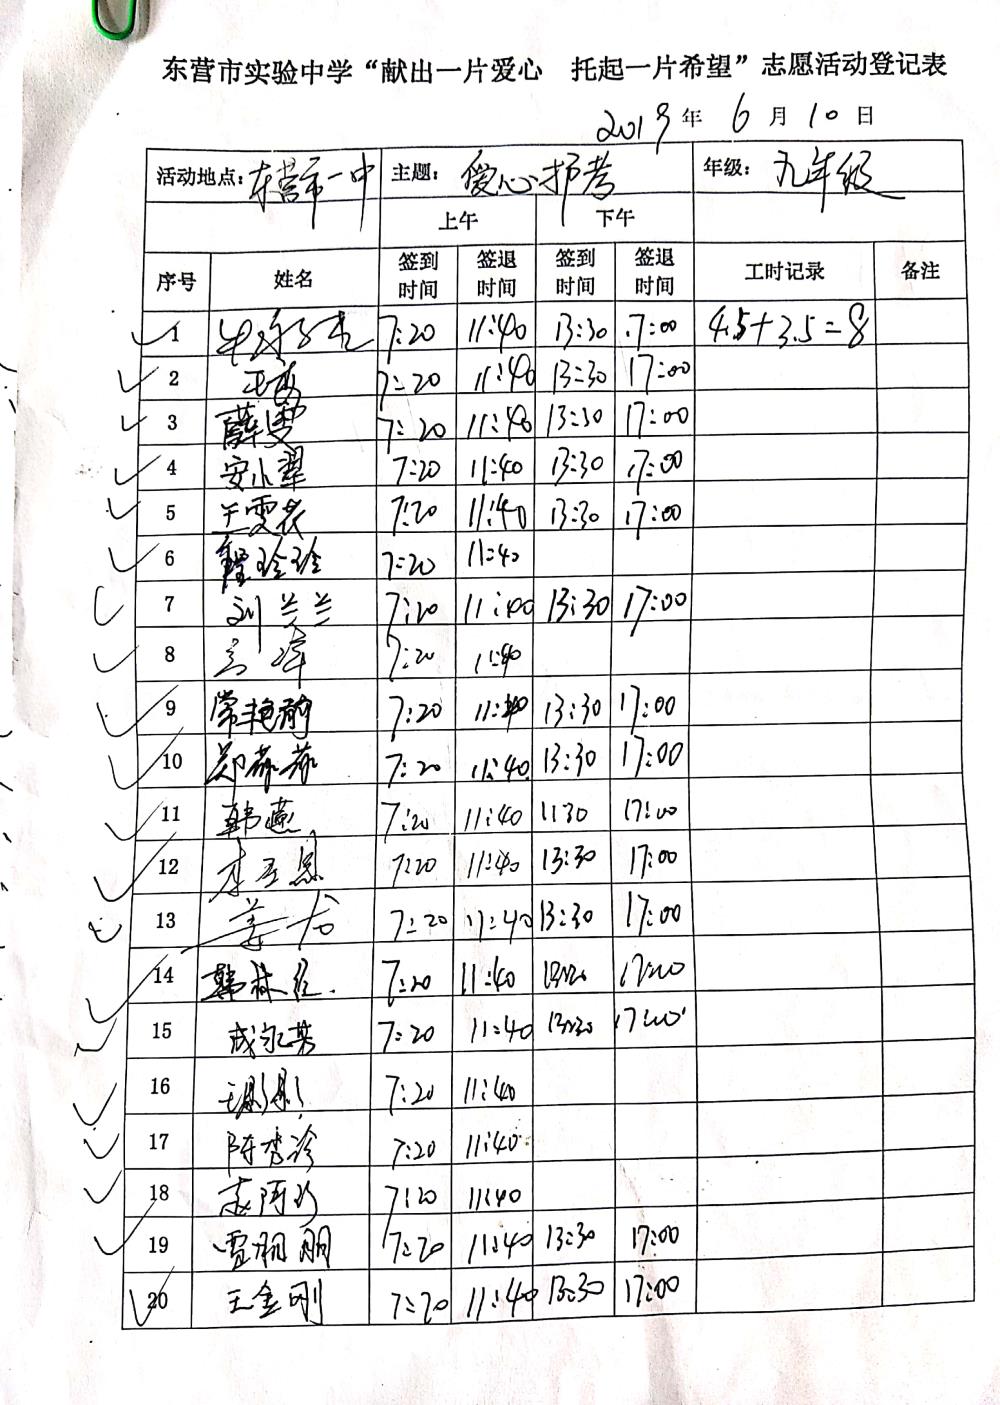 东营市实验中学“献出一片爱心 托起一片希望”志愿活动登记表
2019年 6月10日
活动地点：东营市一中 主题：爱心护考 年级：九年级
上午 下午
序号 姓名 签到时间 签退时间 签到时间 签退时间 工时记录 备注
1 7:20 11:40 13:30 17:00 4.5+3.5=8
2 7:20 11:40 13:30 17:00
3 薛雯 7:20 11:40 13:30 17:00
4 安小翠 7:20 11:40 13:30 17:00
5 王雯花 7:20 11:40 13:30 17:00
6 玲玲 7:20 11:40
7 刘兰兰 7:20 11:40 13:30 17:00
8 7:20 11:40
9 常艳 7:20 11:40 13:30 17:00
10 郑茹茹 7:20 11:40 13:30 17:00
11 韩燕 7:20 11:40 1130 17:00
12 7:20 11:40 13:30 17:00
13 姜 7:20 11:40 13:30 17:00
14 韩林 7:20 11:40 13:30 17:00
15 成 7:20 11:40 13:30 17:00
16 王彤彤 7:20 11:40
17 陈秀珍 7:20 11:40
18 7:20 11:40
19 朋 7:20 11:40 13:30 17:00
20 王金刚 7:20 11:40 13:30 17:00